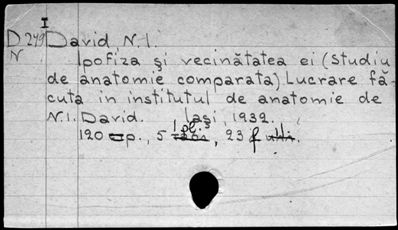 I
D 249 David N.I.
N Ipofiza și vecinătatea ei (Studiu
de anatomie comparata) Lucrare fă-
cuta in institutul de anatomie de
N.I. David. Iași, 1932.
120 p., 5 pl., 23 f